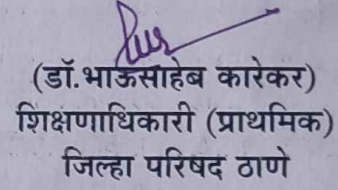 (डॉ.भाऊसाहेब कारेकर)
शिक्षणाधिकारी (प्राथमिक)
जिल्हा परिषद ठाणे